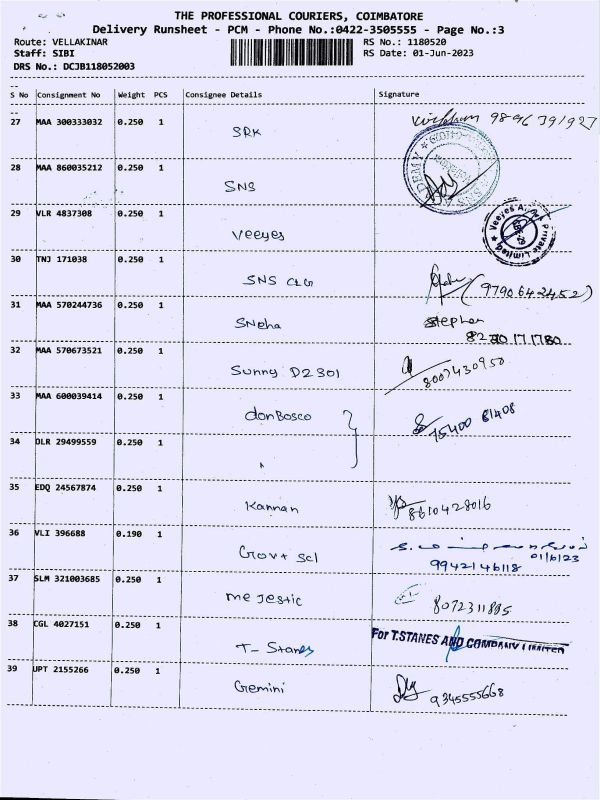 THE PROFESSIONAL COURIERS, COIMBATORE
Delivery Runsheet - PCM - Phone No.:0422-3505555 - Page No.:3
Route: VELLAKINAR RS No.: 1180520
Staff: SIBI RS Date: 01-Jun-2023
DRS No.: DCJB118052003
S No Consignment No Weight PCS Consignee Details Signature
27 MAA 300333032 0.250 1 SRK
28 MAA 860035212 0.250 1 SNS
29 VLR 4837308 0.250 1 Veeyes
30 TNJ 171038 0.250 1 SNS CLG (9790642452)
31 MAA 570244736 0.250 1 SNeha Stephen
32 MAA 570673521 0.250 1 Sunny D2301 8007430950
33 MAA 600039414 0.250 1 donBosco 75400 81408
34 DLR 29499559 0.250 1
35 EDQ 24567874 0.250 1 Kannan 8610428016
36 VLI 396688 0.190 1 Govt scl 01/6/23
9942146118
37 SLM 321003685 0.250 1 mejestic 8072311895
38 CGL 4027151 0.250 1 T- Stanes For T.STANES AND COMPANY LIMITED
39 UPT 2155266 0.250 1 Gemini 9345555668